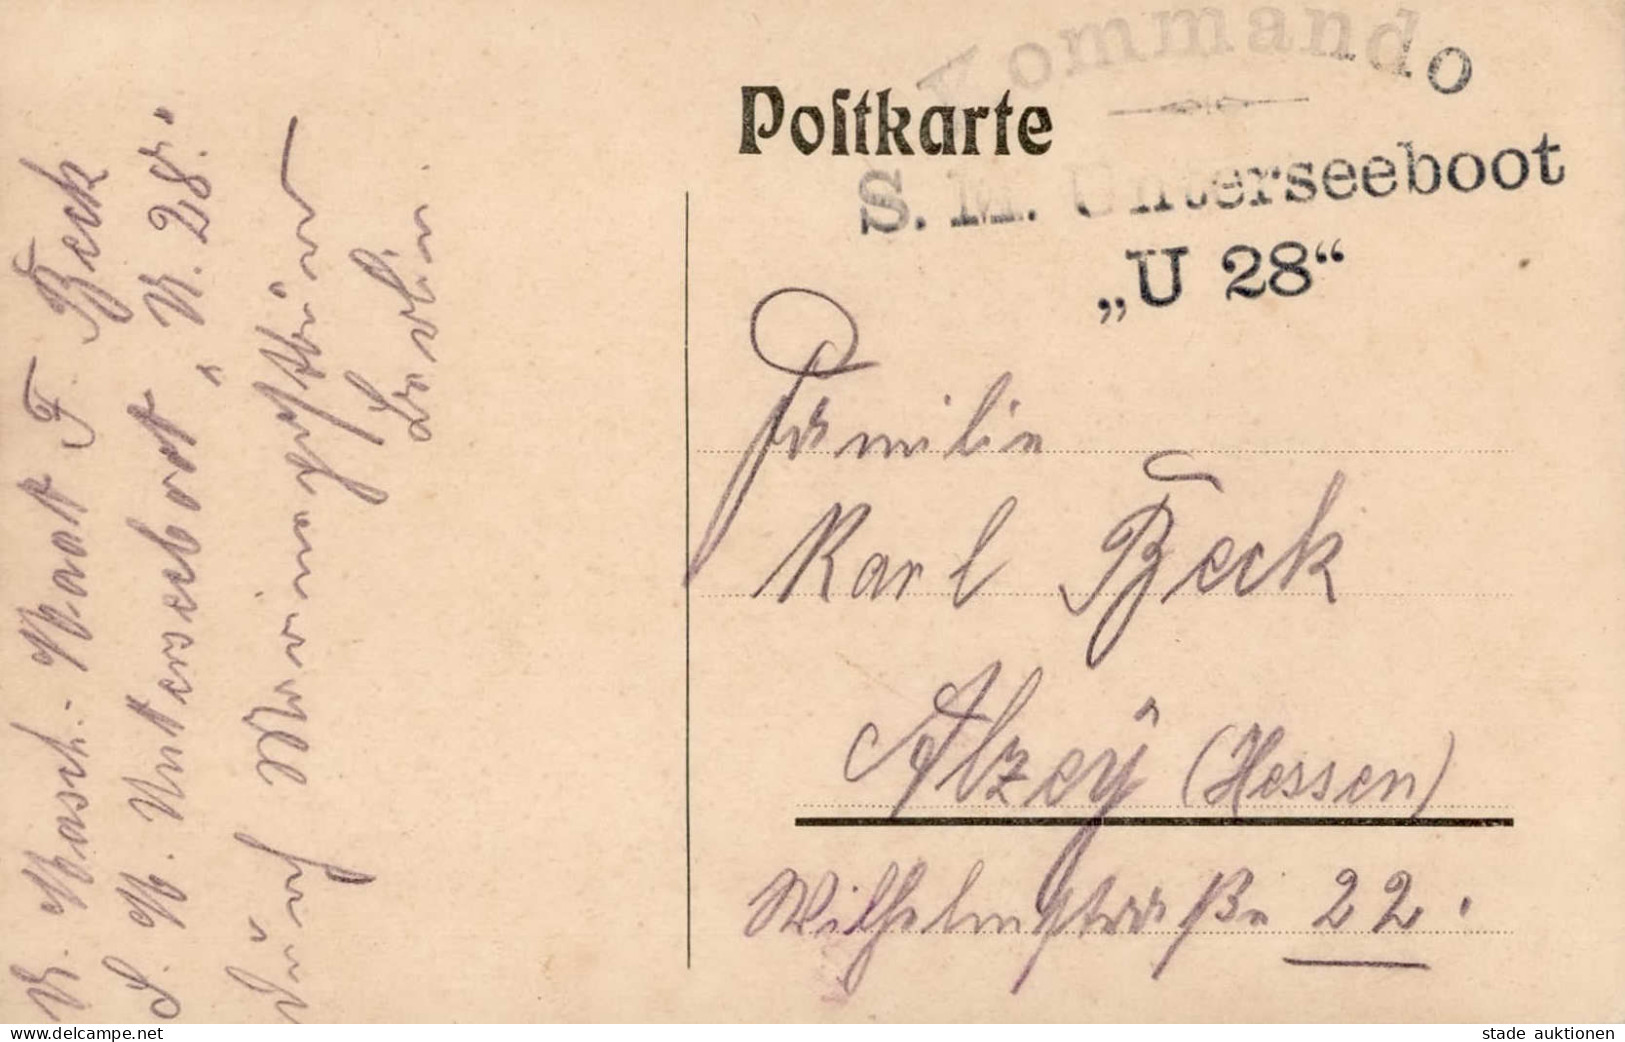 Kommando
Postkarte
S. M. Unterseeboot
„U 28“
Familie
Karl Beck
Alzey (Hessen)
Wilhelmstraße 22.
U. Masch. Maat F. Beck
S. M. Unterseeboot „U. 28."
Durch Marinepostbüro
Berlin.
www.delcampe.net
stade auktionen